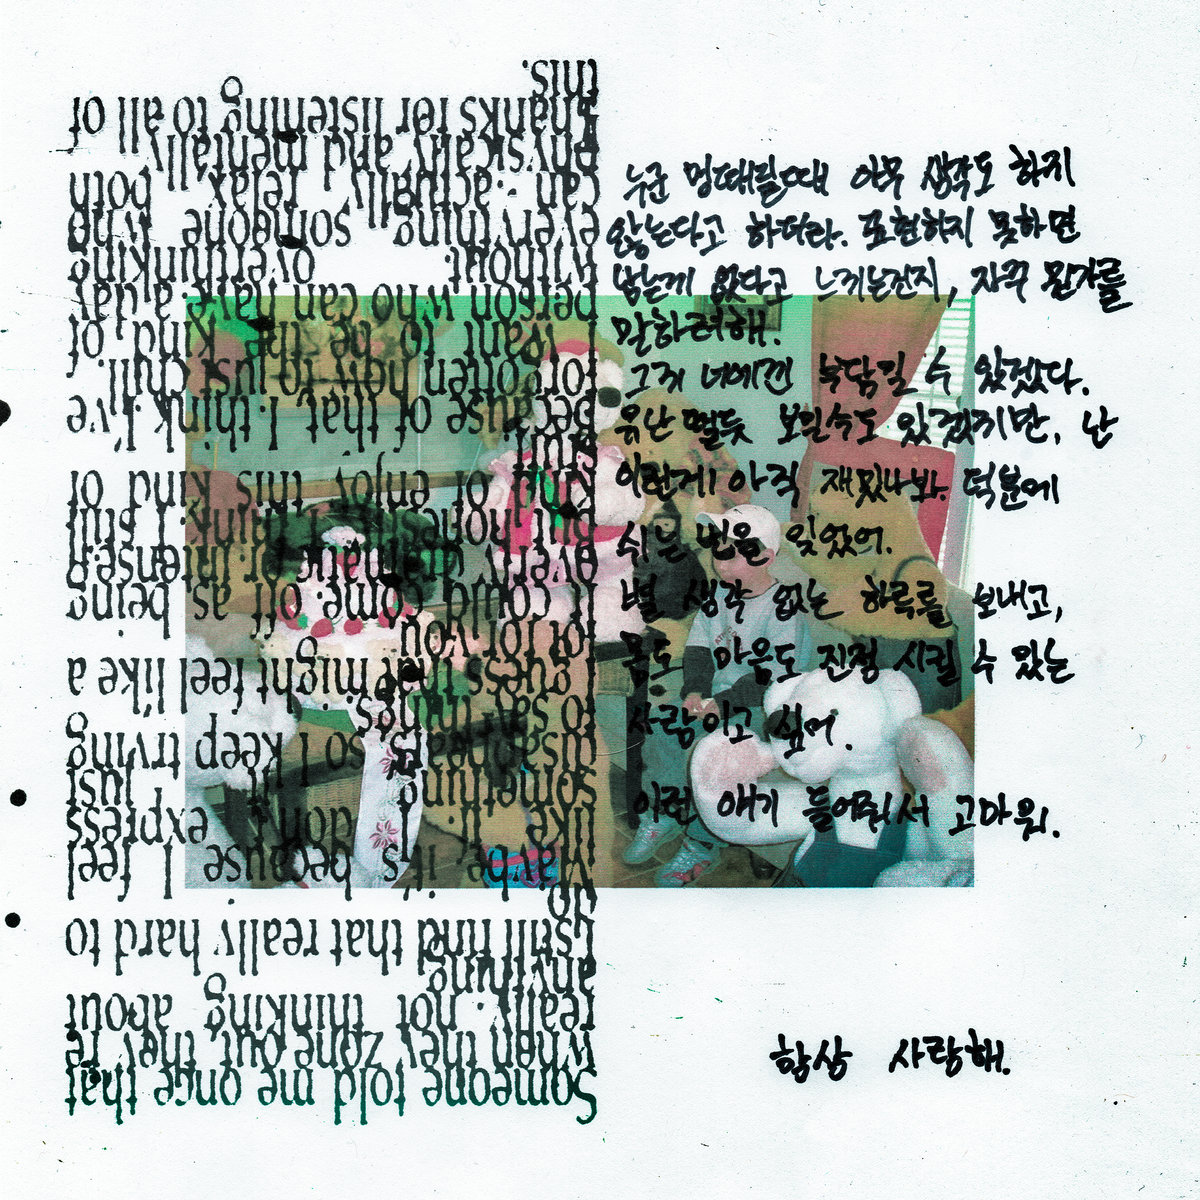 Someone told me once that
when they zone out, they're
really not thinking about
anything.
I still find that really hard to
do.
Maybe it's because I feel
like if I don't express
something, it just
disappears, so I keep trying
to say things.
I guess that might feel like a
lot for you.
It could come off as being
overly dramatic or intense,
but honestly, I think I still
kind of enjoy this kind of
stuff.
Because of that, I think I've
forgotten how to just chill.
I want to be the kind of
person who can have a day
without overthinking
everything, someone who
can actually relax both
physically and mentally.
Thanks for listening to all of
this.
누군 멍때릴때 아무 생각도 하지
않는다고 하더라. 표현하지 못하면
남는게 없다고 느끼는건지, 자꾸 뭔가를
말하려해.
그게 너에겐 부담일 수 있겠다.
유난 떨듯 보일수도 있겠지만, 난
이런게 아직 재밌나봐. 덕분에
쉬는 법을 잊었어.
별 생각 없는 하루를 보내고,
몸도 마음도 진정 시킬 수 있는
사람이고 싶어.
이런 얘기 들어줘서 고마워.
항상 사랑해.